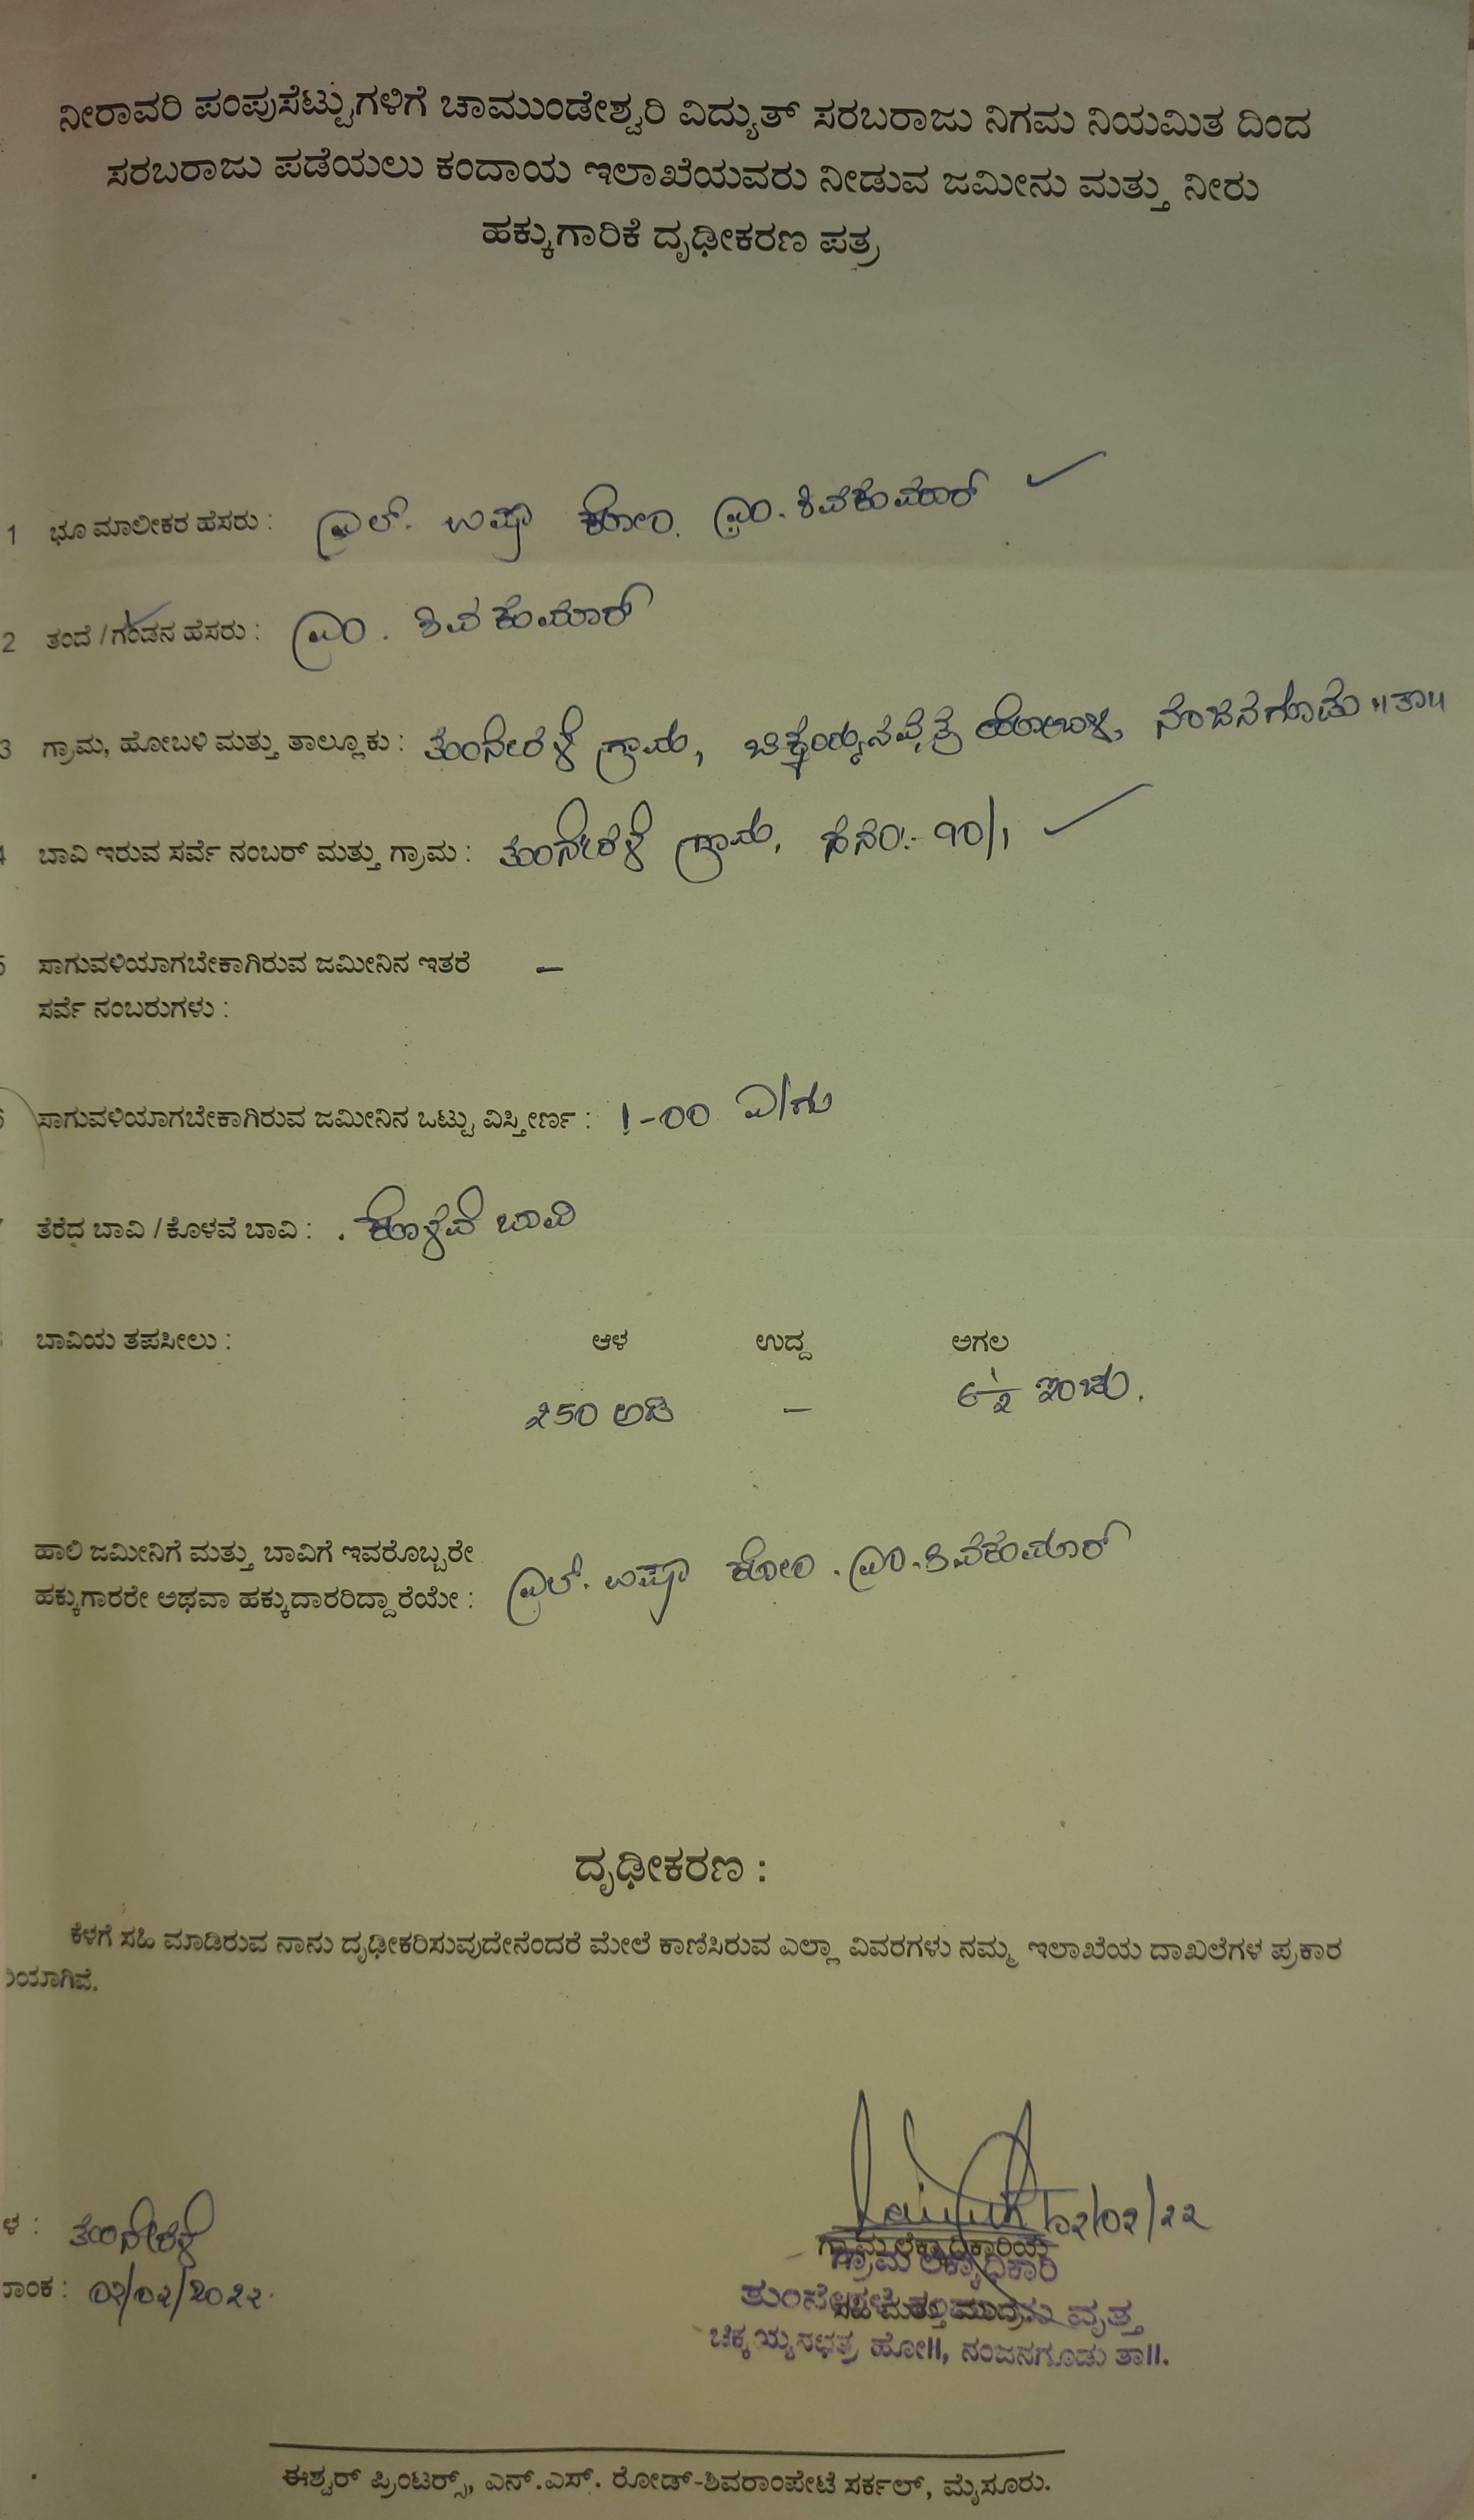 ನೀರಾವರಿ ಪಂಪುಸೆಟ್ಟುಗಳಿಗೆ ಚಾಮುಂಡೇಶ್ವರಿ ವಿದ್ಯುತ್ ಸರಬರಾಜು ನಿಗಮ ನಿಯಮಿತ ದಿಂದ
ಸರಬರಾಜು ಪಡೆಯಲು ಕಂದಾಯ ಇಲಾಖೆಯವರು ನೀಡುವ ಜಮೀನು ಮತ್ತು ನೀರು
ಹಕ್ಕುಗಾರಿಕೆ ದೃಢೀಕರಣ ಪತ್ರ
1 ಭೂ ಮಾಲೀಕರ ಹೆಸರು : ಎಲ್. ಉಷಾ ಕೋಂ. ಎಂ. ಶಿವಕುಮಾರ್
2 ತಂದೆ / ಗಂಡನ ಹೆಸರು : ಎಂ. ಶಿವಕುಮಾರ್
3 ಗ್ರಾಮ, ಹೋಬಳಿ ಮತ್ತು ತಾಲ್ಲೂಕು : ತುಂನೇರಳೆ ಗ್ರಾಮ, ಹೋಬಳಿ, ನಂಜನಗೂಡು ॥ತಾ॥
ಬಾವಿ ಇರುವ ಸರ್ವೆ ನಂಬರ್ ಮತ್ತು ಗ್ರಾಮ : ತುಂನೇರಳೆ ಗ್ರಾಮ, ಸನಂ:- 90/1
ಸಾಗುವಳಿಯಾಗಬೇಕಾಗಿರುವ ಜಮೀನಿನ ಇತರೆ –
ಸರ್ವೆ ನಂಬರುಗಳು :
ಸಾಗುವಳಿಯಾಗಬೇಕಾಗಿರುವ ಜಮೀನಿನ ಒಟ್ಟು ವಿಸ್ತೀರ್ಣ : 1-00 ಎ/ಗು
ತೆರೆದ ಬಾವಿ / ಕೊಳವೆ ಬಾವಿ : ಕೊಳವೆ ಬಾವಿ
ಬಾವಿಯ ತಪಸೀಲು : ಆಳ ಉದ್ದ ಅಗಲ
250 ಅಡಿ – 6½ ಇಂಚು.
ಹಾಲಿ ಜಮೀನಿಗೆ ಮತ್ತು ಬಾವಿಗೆ ಇವರೊಬ್ಬರೇ
ಹಕ್ಕುಗಾರರೇ ಅಥವಾ ಹಕ್ಕುದಾರರಿದ್ದಾರೆಯೇ : ಎಲ್. ಉಷಾ ಕೋಂ. ಎಂ. ಶಿವಕುಮಾರ್
ದೃಢೀಕರಣ :
ಕೆಳಗೆ ಸಹಿ ಮಾಡಿರುವ ನಾನು ದೃಢೀಕರಿಸುವುದೇನೆಂದರೆ ಮೇಲೆ ಕಾಣಿಸಿರುವ ಎಲ್ಲಾ ವಿವರಗಳು ನಮ್ಮ ಇಲಾಖೆಯ ದಾಖಲೆಗಳ ಪ್ರಕಾರ
ರಿಯಾಗಿವೆ.
02/02/22
ಳ : ತುಂನೇರಳೆ
ಗ್ರಾಮ ಲೆಕ್ಕಾಧಿಕಾರಿ
ರಾಂಕ : 02/02/2022.
ವೃತ್ತ
ಚಿಕ್ಕಯ್ಯನಛತ್ರ ಹೋ॥, ನಂಜನಗೂಡು ತಾ॥.
ಈಶ್ವರ್ ಪ್ರಿಂಟರ್ಸ್, ಎನ್.ಎಸ್. ರೋಡ್-ಶಿವರಾಂಪೇಟೆ ಸರ್ಕಲ್, ಮೈಸೂರು.